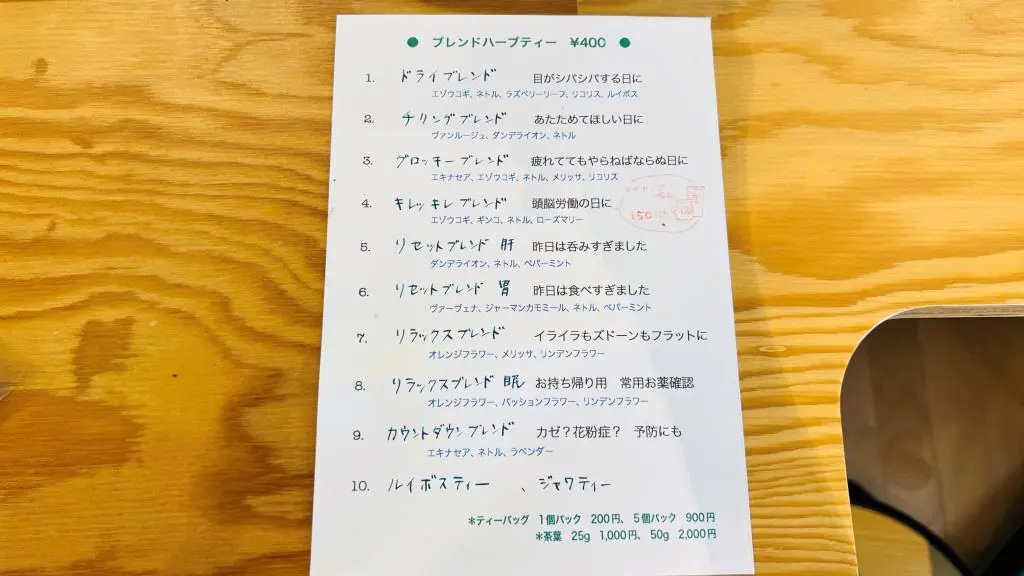 ● ブレンドハーブティー ¥400 ●
1. ドライブレンド 目がシパシパする日に
エゾウコギ、ネトル、ラズベリーリーフ、リコリス、ルイボス
2. チリングブレンド あたためてほしい日に
ヴァンルージュ、ダンデライオン、ネトル
3. グロッキーブレンド 疲れててもやらねばならぬ日に
エキナセア、エゾウコギ、ネトル、メリッサ、リコリス
4. キレッキレブレンド 頭脳労働の日に
エゾウコギ、ギンコ、ネトル、ローズマリー
150
5. リセットブレンド 肝 昨日は呑みすぎました
ダンデライオン、ネトル、ペパーミント
6. リセットブレンド 胃 昨日は食べすぎました
ヴァーヴェナ、ジャーマンカモミール、ネトル、ペパーミント
7. リラックスブレンド イライラもズドーンもフラットに
オレンジフラワー、メリッサ、リンデンフラワー
8. リラックスブレンド 眠 お持ち帰り用 常用お薬確認
オレンジフラワー、パッションフラワー、リンデンフラワー
9. カウントダウンブレンド カゼ?花粉症? 予防にも
エキナセア、ネトル、ラベンダー
10. ルイボスティー 、ジャワティー
*ティーバッグ 1個パック 200円、5個パック 900円
*茶葉 25g 1,000円、50g 2,000円